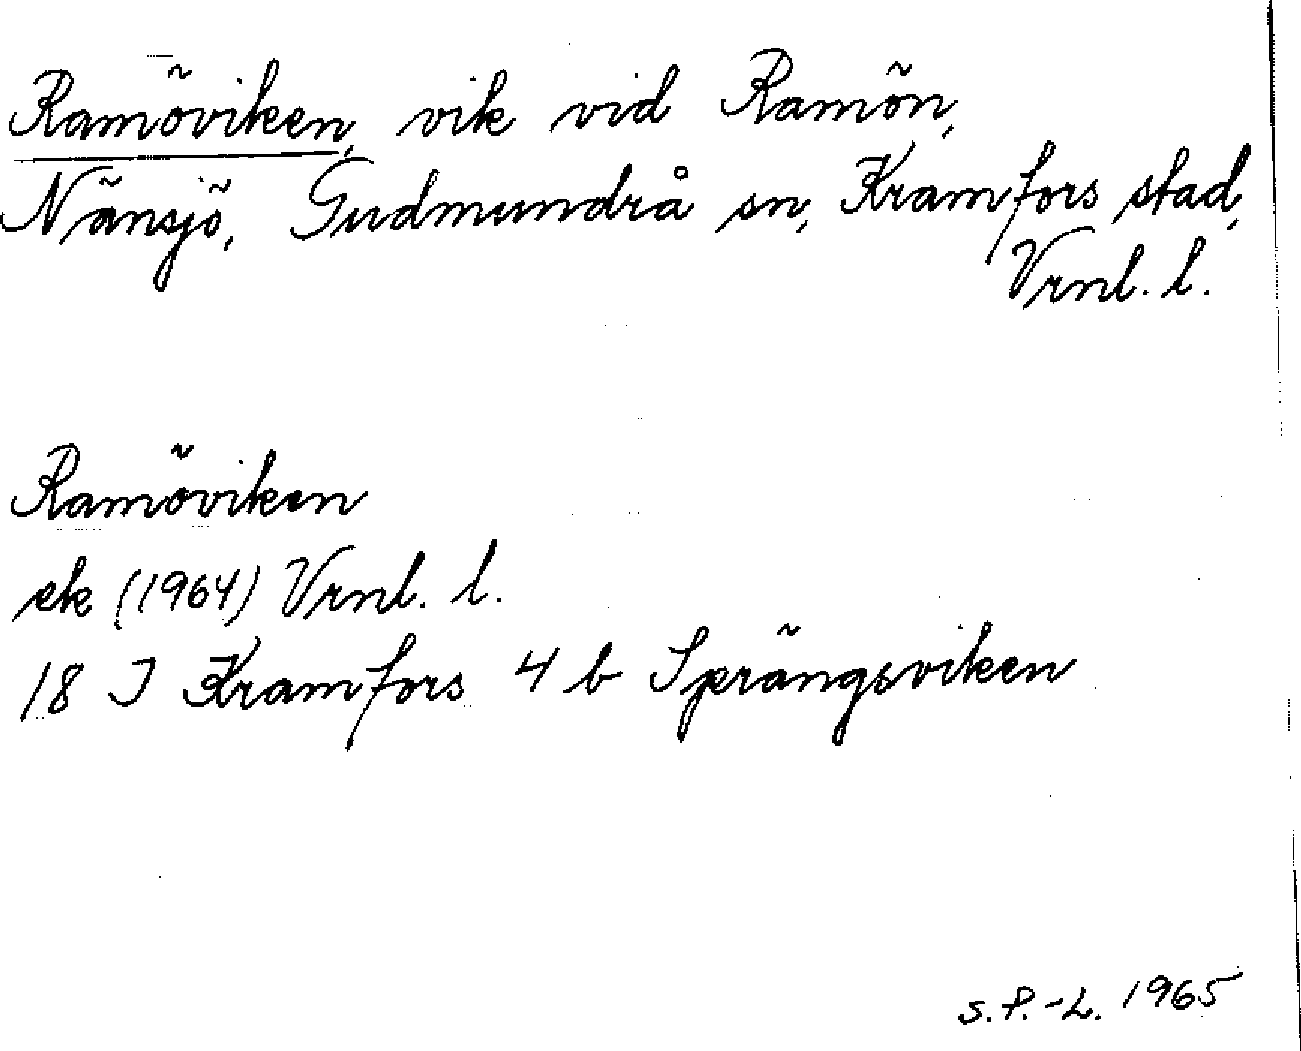 Ramöviken, vik vid Ramön,
Nänsjö, Gudmundrå sn, Kramfors stad,
Vrnl. l.
Ramöviken
ek (1964) Vrnl. l.
18 I Kramfors 4 b Sprängsviken
S.P.-L. 1965